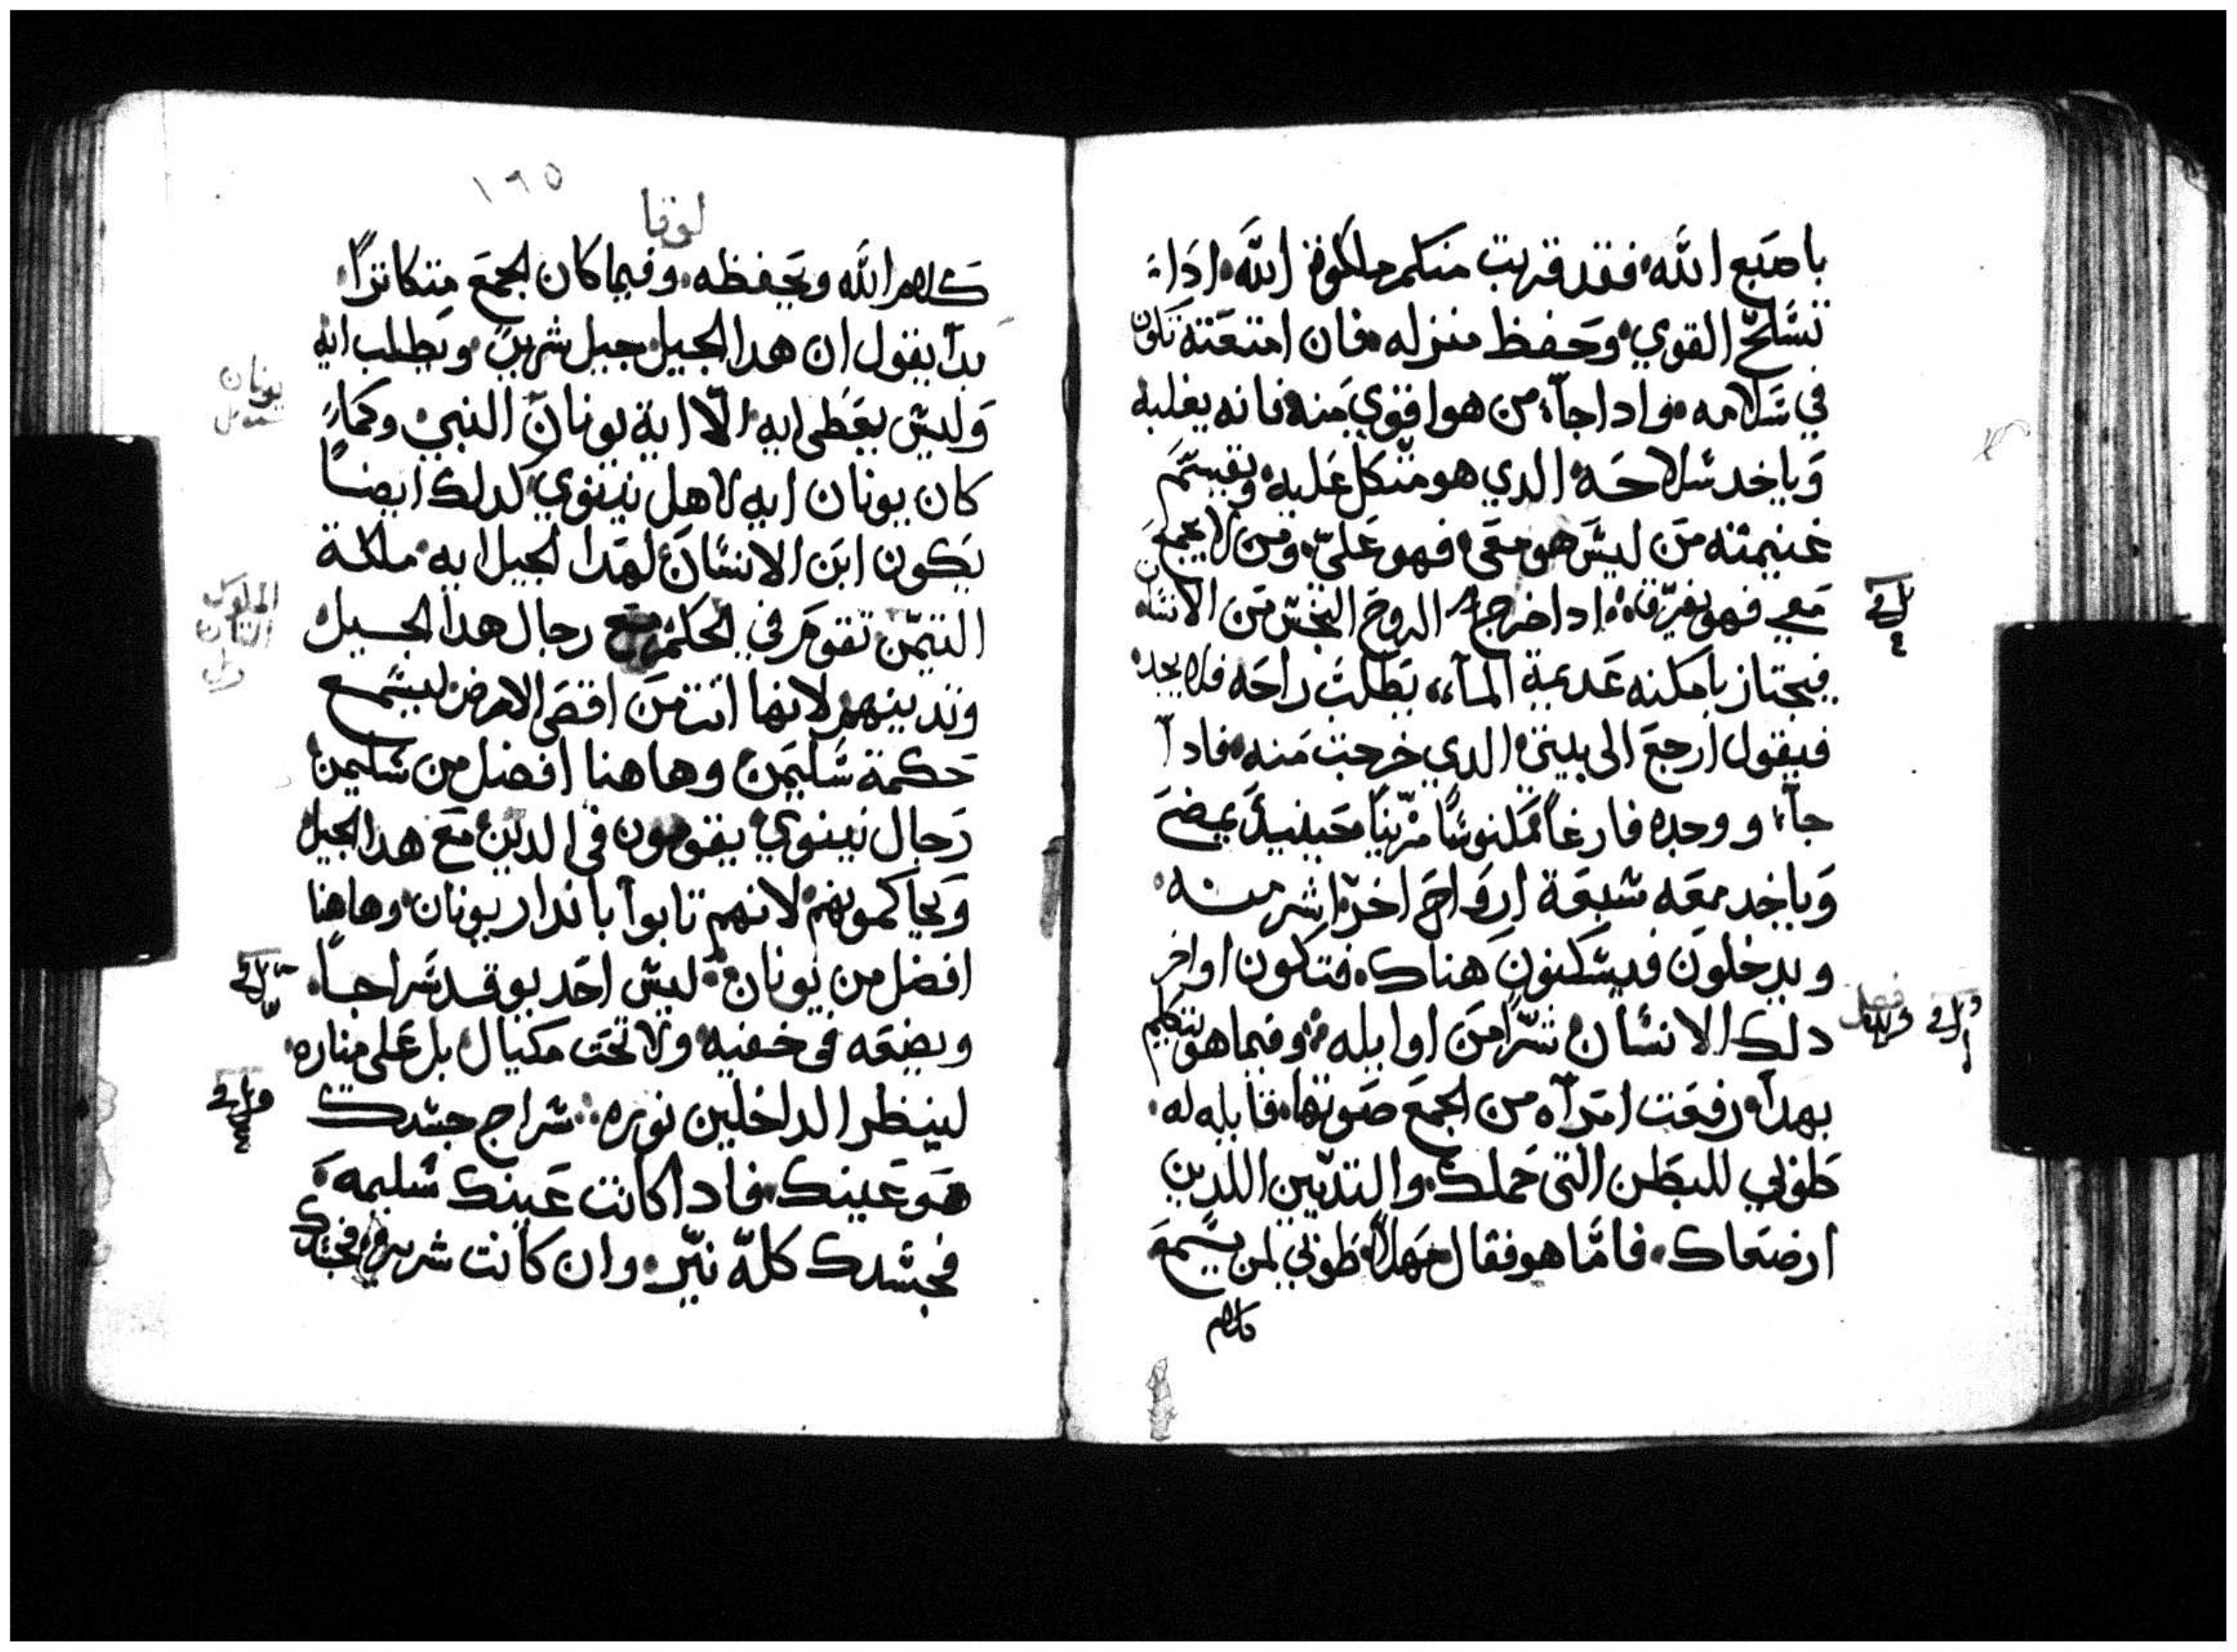 باصبع الله فقد قربت منكم ملكوة الله اداا
تسلح القوي وحفظ منزله فان امتعته تكون
في سلامه واداجاء من هوا قوي منه فانه يغلبه
وياخد سلاحه الدي هو متكل عليه ويقسم
غنيمته من ليس هو معي فهو علي ومن لا يجمع
معي فهو يفرق اداخرج الروح النجس من الانسان
فيجتاز بامكنه عديمة الماء يطلب راحه فلا يجد
فيقول ارجع الى بيتي الدي خرجت منه فادا
جاء ووجده فارغا مكنوسا مزينا حينيد يمضي
وياخد معه سبعة ارواح اخر اشر منه
ويدخلون فيسكنون هناك فتكون اواخر
دلك الانسان شرا من اوايله وفيما هو يتكلم
بهدا رفعت امراه من الجمع صوتها قايله له
طوبي للبطن التي حملك والتديين اللدين
ارضعاك فاما هو فقال مهلا طوبي لمن يسمع
كلام
١٩٥
لوقا
كلام الله ويحفظه وفيما كان الجمع متكاترا
بدا يقول ان هدا الجيل جيل شرير ويطلب ايه
وليس يعطى ايه الا اية يونان النبي وكما
كان يونان ايه لاهل نينوي كدلك ايضا
يكون ابن الانسان لهدا الجيل ايه ملكة
التيمن تقوم في الحكم مع رجال هدا الجيل
وتدينهم لانها اتت من اقصى الارض ليسمع
حكمة سليمن وهاهنا افضل من سليمن
رجال نينوي يقومون في الدين مع هدا الجيل
ويحاكمونهم لانهم تابوا باندار يونان وهاهنا
افضل من يونان ليس احد يوقد سراجا
ويضعه في خفيه ولا تحت مكيال بل على مناره
لينظر الداخلين نوره سراج جسدك
هو عينك فادا كانت عينك سليمه
فجسدك كله نير وان كانت شريره فجسدك
يونان
الملوك